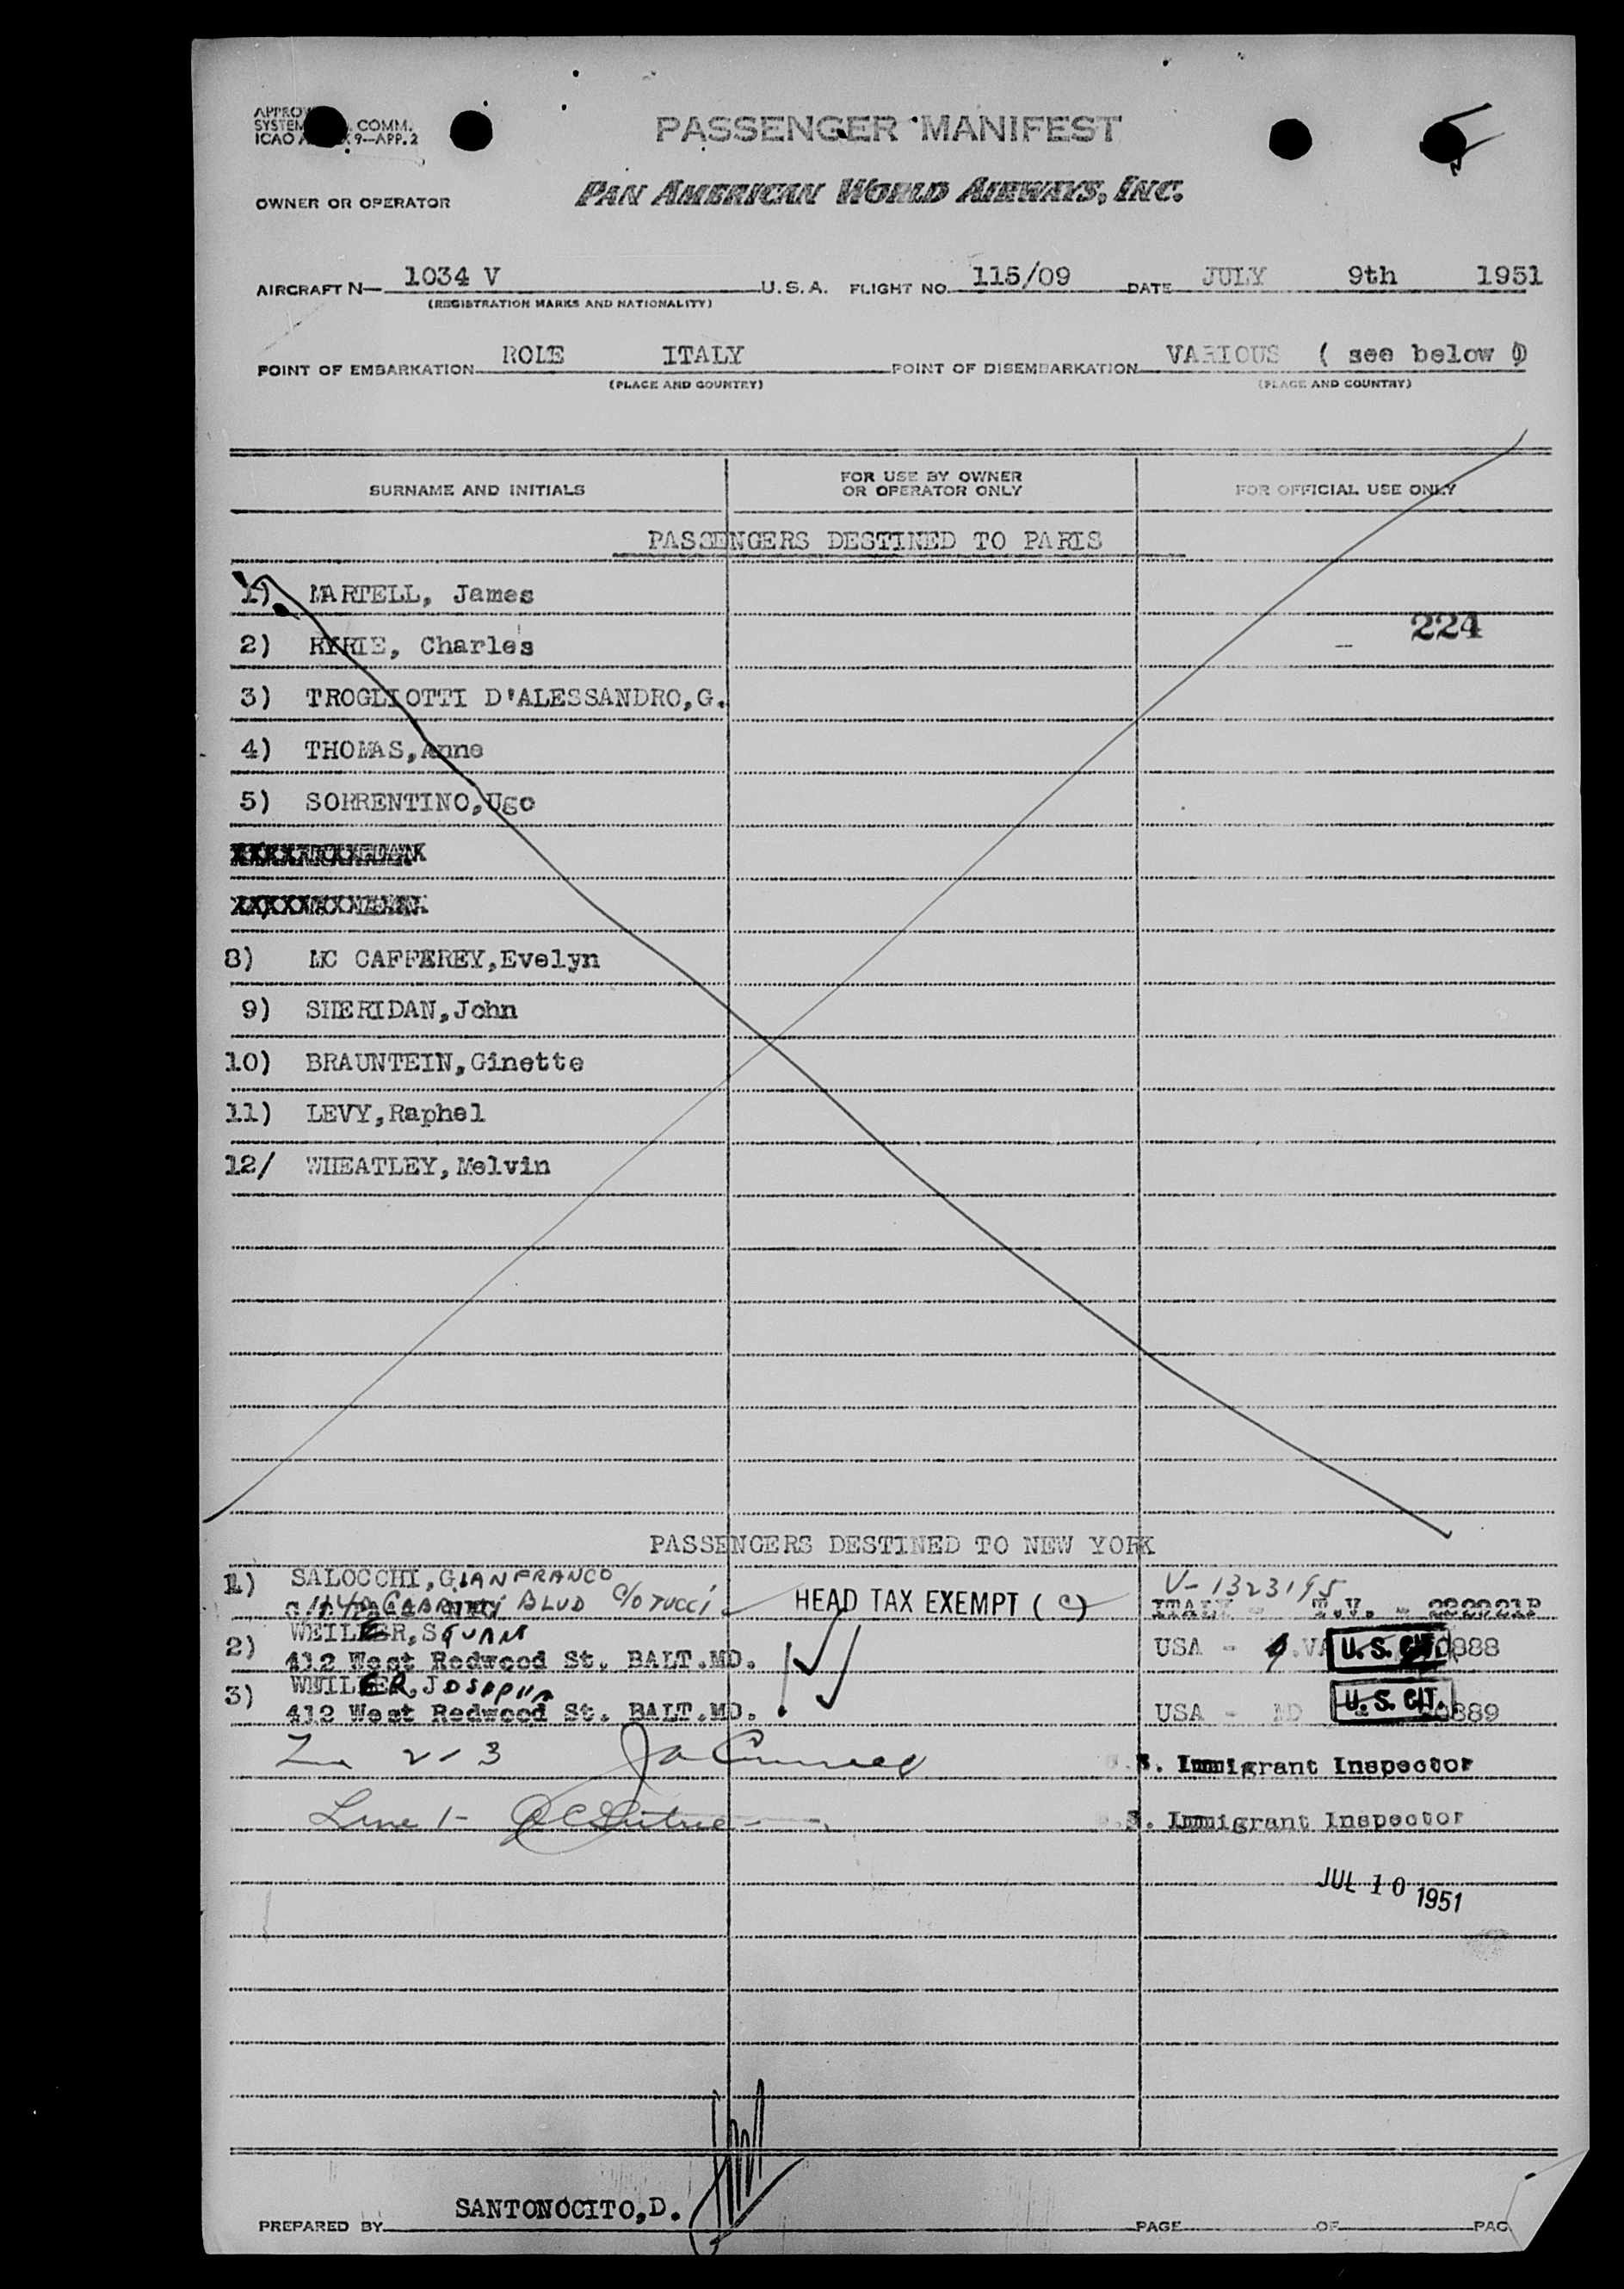 PASSENGER MANIFEST
COMM.
ICAO 9—APP. 2
OWNER OR OPERATOR
PAN AMERICAN WORLD AIRWAYS, INC.
AIRCRAFT N— 1034 V U.S.A. FLIGHT NO. 115/09 DATE JULY 9th 1951
(REGISTRATION MARKS AND NATIONALITY)
POINT OF EMBARKATION ROME ITALY POINT OF DISEMBARKATION VARIOUS ( see below )
(PLACE AND COUNTRY) (PLACE AND COUNTRY)
SURNAME AND INITIALS FOR USE BY OWNER OR OPERATOR ONLY FOR OFFICIAL USE ONLY
PASSENGERS DESTINED TO PARIS
1) MARTELL, James
224
2) RYRIE, Charles
3) TROGLIOTTI D'ALESSANDRO,G.
4) THOMAS,Anne
5) SORRENTINO,Ugo
8) MC CAFFEREY,Evelyn
9) SHERIDAN,John
10) BRAUNTEIN,Ginette
11) LEVY,Raphel
12/ WHEATLEY,Melvin
PASSENGERS DESTINED TO NEW YORK
1) SALOCCHI,GIANFRANCO V-1323195
BLVD C/O TUCCI HEAD TAX EXEMPT ( C ) ITALY - T.V. -
2) WEILLER,S USA - U.S. CIT. 0888
412 West Redwood St. BALT.MD.
3) WEILLER,J
412 West Redwood St. BALT.MD. USA - U.S. CIT. 0889
2-3 S. Immigrant Inspector
Line 1- S. Immigrant Inspector
JUL 10 1951
PREPARED BY SANTONOCITO,D. PAGE OF PAG